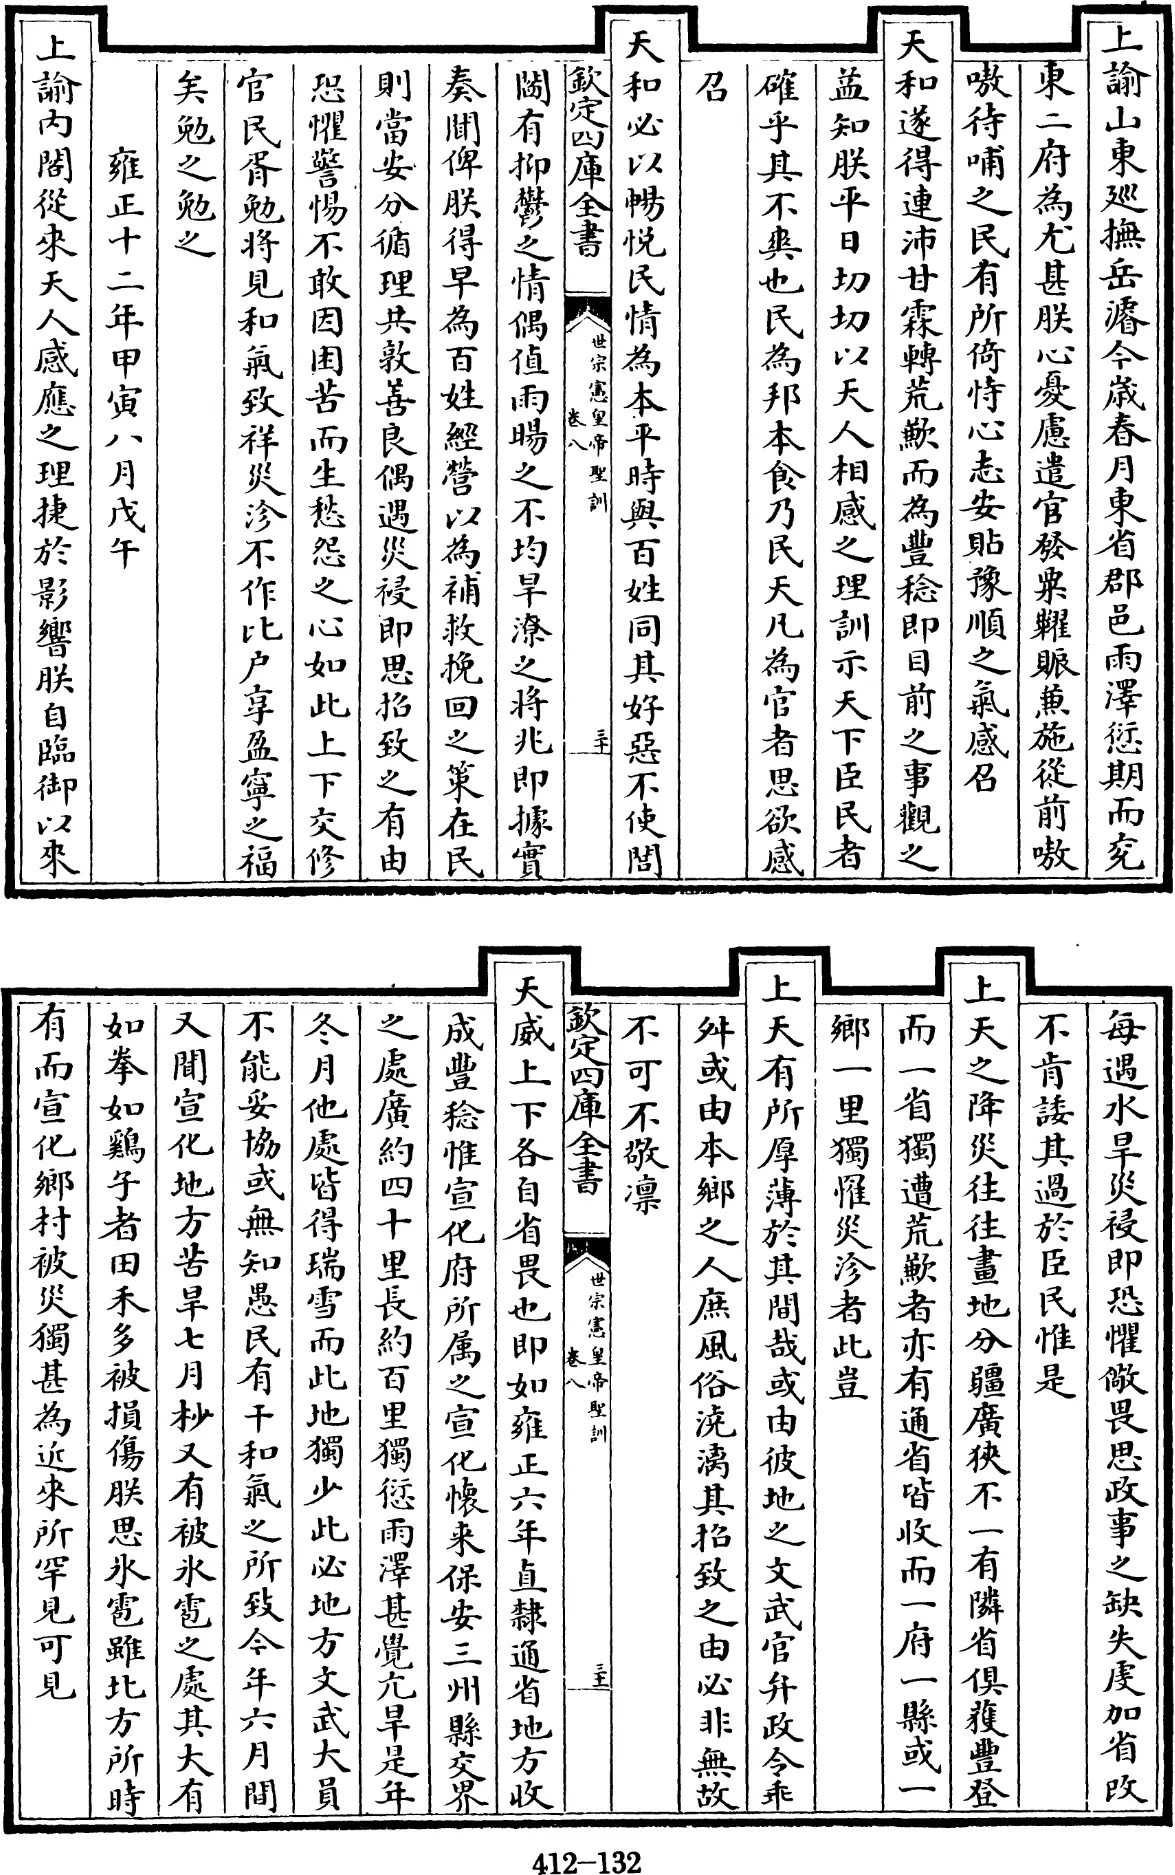 上諭山東廵撫岳濬今嵗春月東省郡邑雨澤愆期而兗
東二府為尤甚朕心憂慮遣官發粟糶賑兼施從前嗷
嗷待哺之民有所倚恃心志安貼豫順之氣感召
天和遂得連沛甘霖轉荒歉而為豐稔即目前之事觀之
益知朕平日切切以天人相感之理訓示天下臣民者
確乎其不爽也民為邦本食乃民天凡為官者思欲感
召
天和必以暢悦民情為本平時與百姓同其好惡不使閭
欽定四庫全書
世宗憲皇帝聖訓
卷八
三十
閻有抑鬱之情偶值雨暘之不均旱潦之將兆即據實
奏聞俾朕得早為百姓經營以為補救挽回之策在民
則當安分循理共敦善良偶遇災祲即思招致之有由
恐懼警惕不敢因困苦而生愁怨之心如此上下交修
官民胥勉將見和氣致祥災沴不作比户享盈寧之福
矣勉之勉之
雍正十二年甲寅八月戊午
上諭内閣從來天人感應之理捷於影響朕自臨御以來
每遇水旱災祲即恐懼儆畏思政事之缺失虔加省改
不肯諉其過於臣民惟是
上天之降災往往畫地分疆廣狹不一有隣省俱穫豐登
而一省獨遭荒歉者亦有通省皆收而一府一縣或一
鄉一里獨罹災沴者此豈
上天有所厚薄於其間哉或由彼地之文武官弁政令乖
舛或由本鄉之人庶風俗澆漓其招致之由必非無故
不可不敬凛
欽定四庫全書
世宗憲皇帝聖訓
卷八
三十一
天威上下各自省畏也即如雍正六年直隸通省地方收
成豐稔惟宣化府所属之宣化懷来保安三州縣交界
之處廣約四十里長約百里獨愆雨澤甚覺亢旱是年
冬月他處皆得瑞雪而此地獨少此必地方文武大員
不能妥協或無知愚民有干和氣之所致今年六月間
又聞宣化地方苦旱七月杪又有被氷雹之處其大有
如拳如鷄子者田禾多被損傷朕思氷雹雖北方所時
有而宣化鄉村被災獨甚為近來所罕見可見
412-132